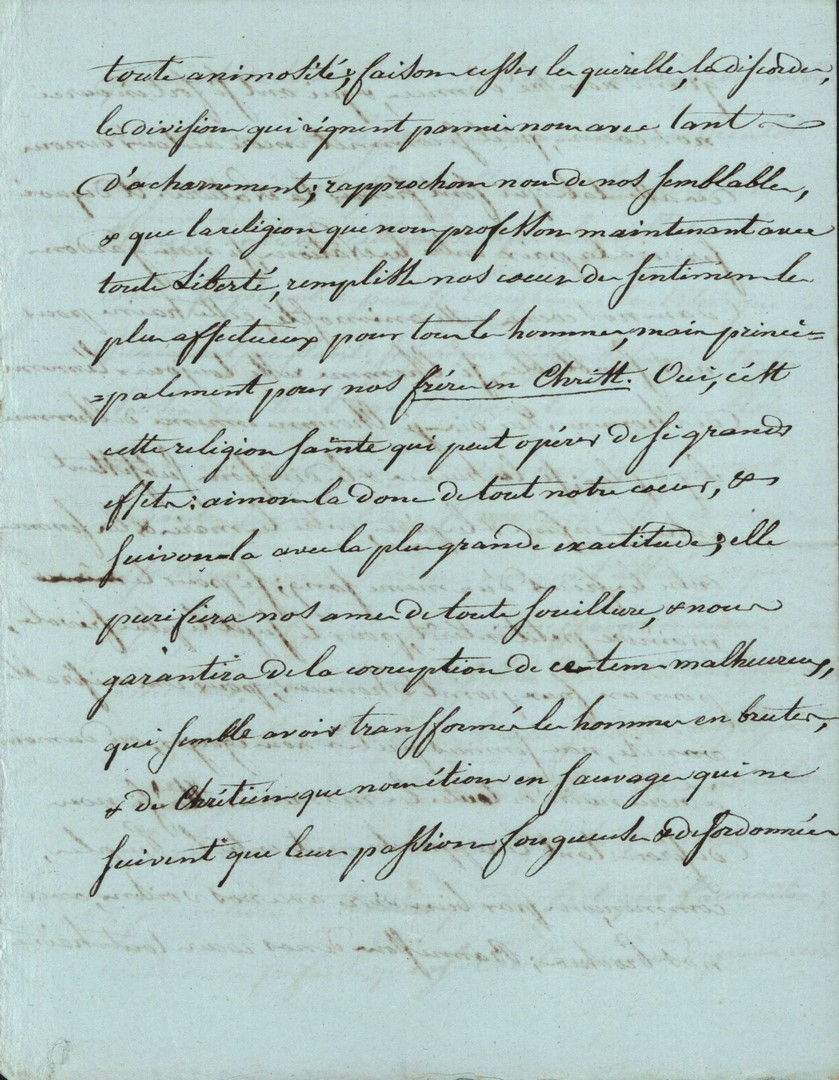 toute animosité; faisons cesser les querelles, la discorde,
les divisions qui règnent parmi nous avec tant
d'acharnement; rapprochons nous de nos semblables,
& que la religion que nous professons maintenant avec
toute liberté, remplisse nos coeurs des sentimens les
plus affectueux pour tous les hommes, mais princi=
=palement pour nos frères en Christ. Oui, c'est
cette religion sainte qui peut opérer de si grands
effets: aimons la donc de tout notre coeur, &
suivons-la avec la plus grande exactitude; elle
purifiera nos ames de toute souillure, & nous
garantira de la corruption de ce tems malheureux,
qui semble avoir transformé les hommes en brutes,
& de Chrétiens que nous étions en sauvages qui ne
suivent que leurs passions fougueuses & désordonnées